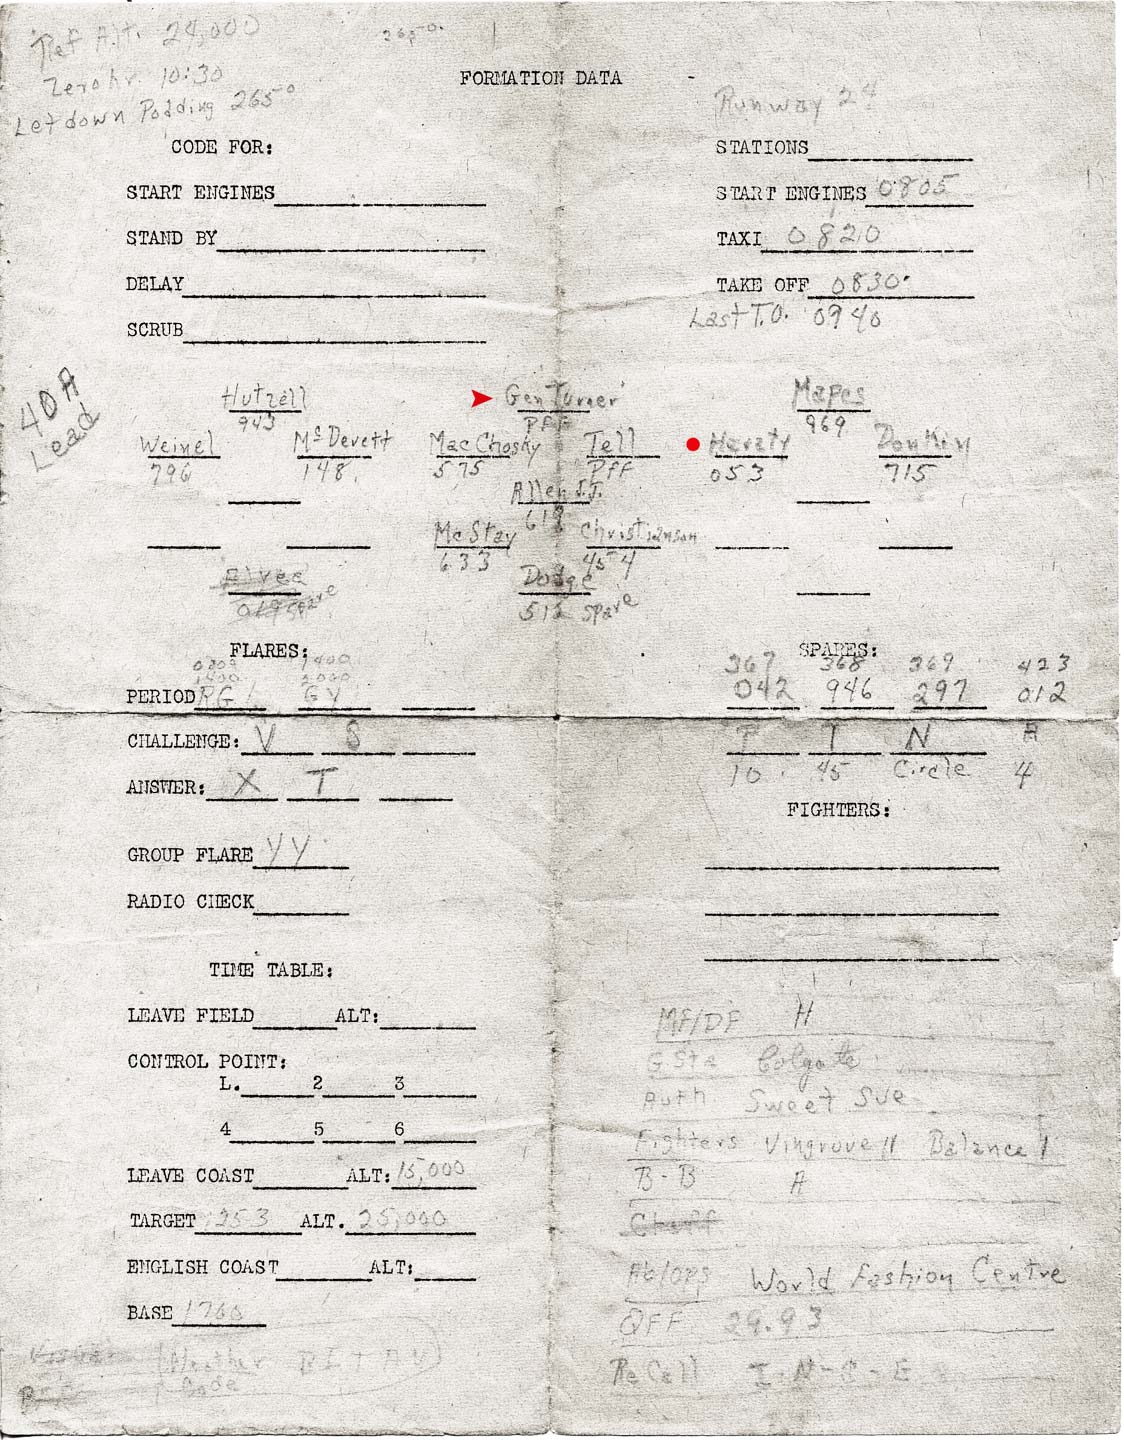 Ref Alt. 24,000 265°
Zero hr. 10:30
FORMATION DATA
Letdown Podding 265°
Runway 24
CODE FOR: STATIONS
START ENGINES START ENGINES 0805
STAND BY TAXI 0820
DELAY TAKE OFF 0830
Last T.O. 0940
SCRUB
40A
Lead
Hutzell Gen Turner Mapes
943 PFF 969
Weinel McDevett MacChosky Tell Heraty Donkin
796 148 575 Pff 053 715
Allen J.J.
618
McStay Christianson
633 454
Dodge
512 spare
FLARES: SPARES:
1400 367 368 369 423
1400 2000
PERIOD RG GY 042 946 297 012
CHALLENGE: V S P T N A
ANSWER: X T 10 45 Circle 4
FIGHTERS:
GROUP FLARE YY
RADIO CHECK
TIME TABLE:
LEAVE FIELD ALT:
MF/DF H
CONTROL POINT:
G Sta Colgate
L. 2 3
Auth Sweet Sue
4 5 6
Fighters Vingrove II Balance 1
LEAVE COAST ALT: 15,000
B-B A
TARGET 1253 ALT. 25,000
Chaff
ENGLISH COAST ALT:
Ab/ops World Fashion Centre
BASE 1760
QFF 29.93
Weather
Code
ReCall I-N-C-E